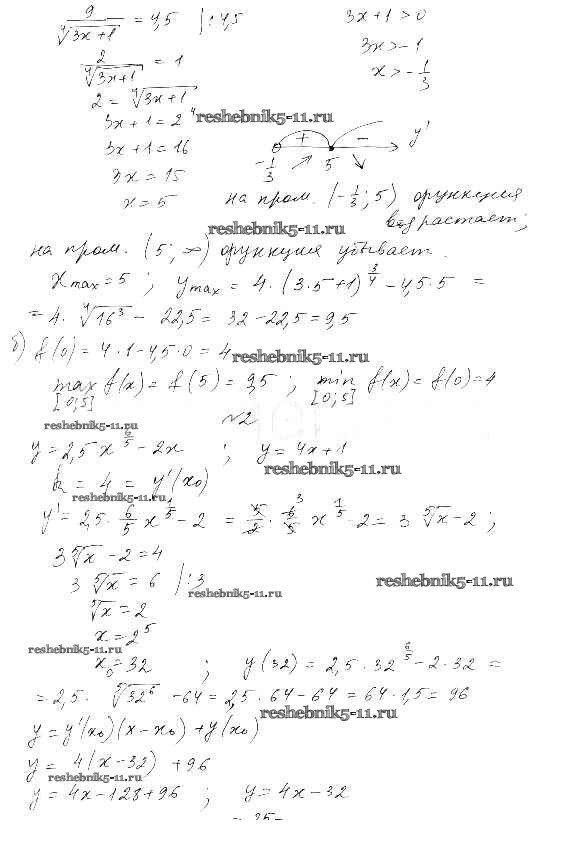 9/⁴√(3x+1) = 4,5 | : 4,5     3x+1 > 0
2/⁴√(3x+1) = 1     3x > -1
2 = ⁴√(3x+1)     x > -1/3
3x+1 = 2⁴ reshebnik5-11.ru
3x+1 = 16     + - y'
3x = 15     -1/3 ↗ 5 ↘
x = 5     на пром. (-1/3; 5) функция
reshebnik5-11.ru возрастает;
на пром. (5; ∞) функция убывает.
x max = 5 ; y max = 4·(3·5+1)^(3/4) - 4,5·5 =
= 4·⁴√16³ - 22,5 = 32 - 22,5 = 9,5
б) f(0) = 4·1 - 4,5·0 = 4 reshebnik5-11.ru
max f(x) = f(5) = 9,5 ; min f(x) = f(0) = 4
[0;5] [0;5]
reshebnik5-11.ru №2
y = 2,5 x^(6/5) - 2x ; y = 4x+1
reshebnik5-11.ru
k = 4 = y'(x₀)
reshebnik5-11.ru
y' = 2,5 · 6/5 x^(1/5) - 2 = 5/2 · 6/5 3 x^(1/5) - 2 = 3 ⁵√x - 2 ;
3 ⁵√x - 2 = 4
3 ⁵√x = 6 | : 3 reshebnik5-11.ru reshebnik5-11.ru
⁵√x = 2
x = 2⁵
reshebnik5-11.ru
x₀ = 32 ; y(32) = 2,5 · 32^(6/5) - 2·32 =
= 2,5 · ⁵√32⁶ - 64 = 2,5 · 64 - 64 = 64 · 1,5 = 96
reshebnik5-11.ru
y = y'(x₀)(x - x₀) + y(x₀)
y = 4(x - 32) + 96
reshebnik5-11.ru
y = 4x - 128 + 96 ; y = 4x - 32